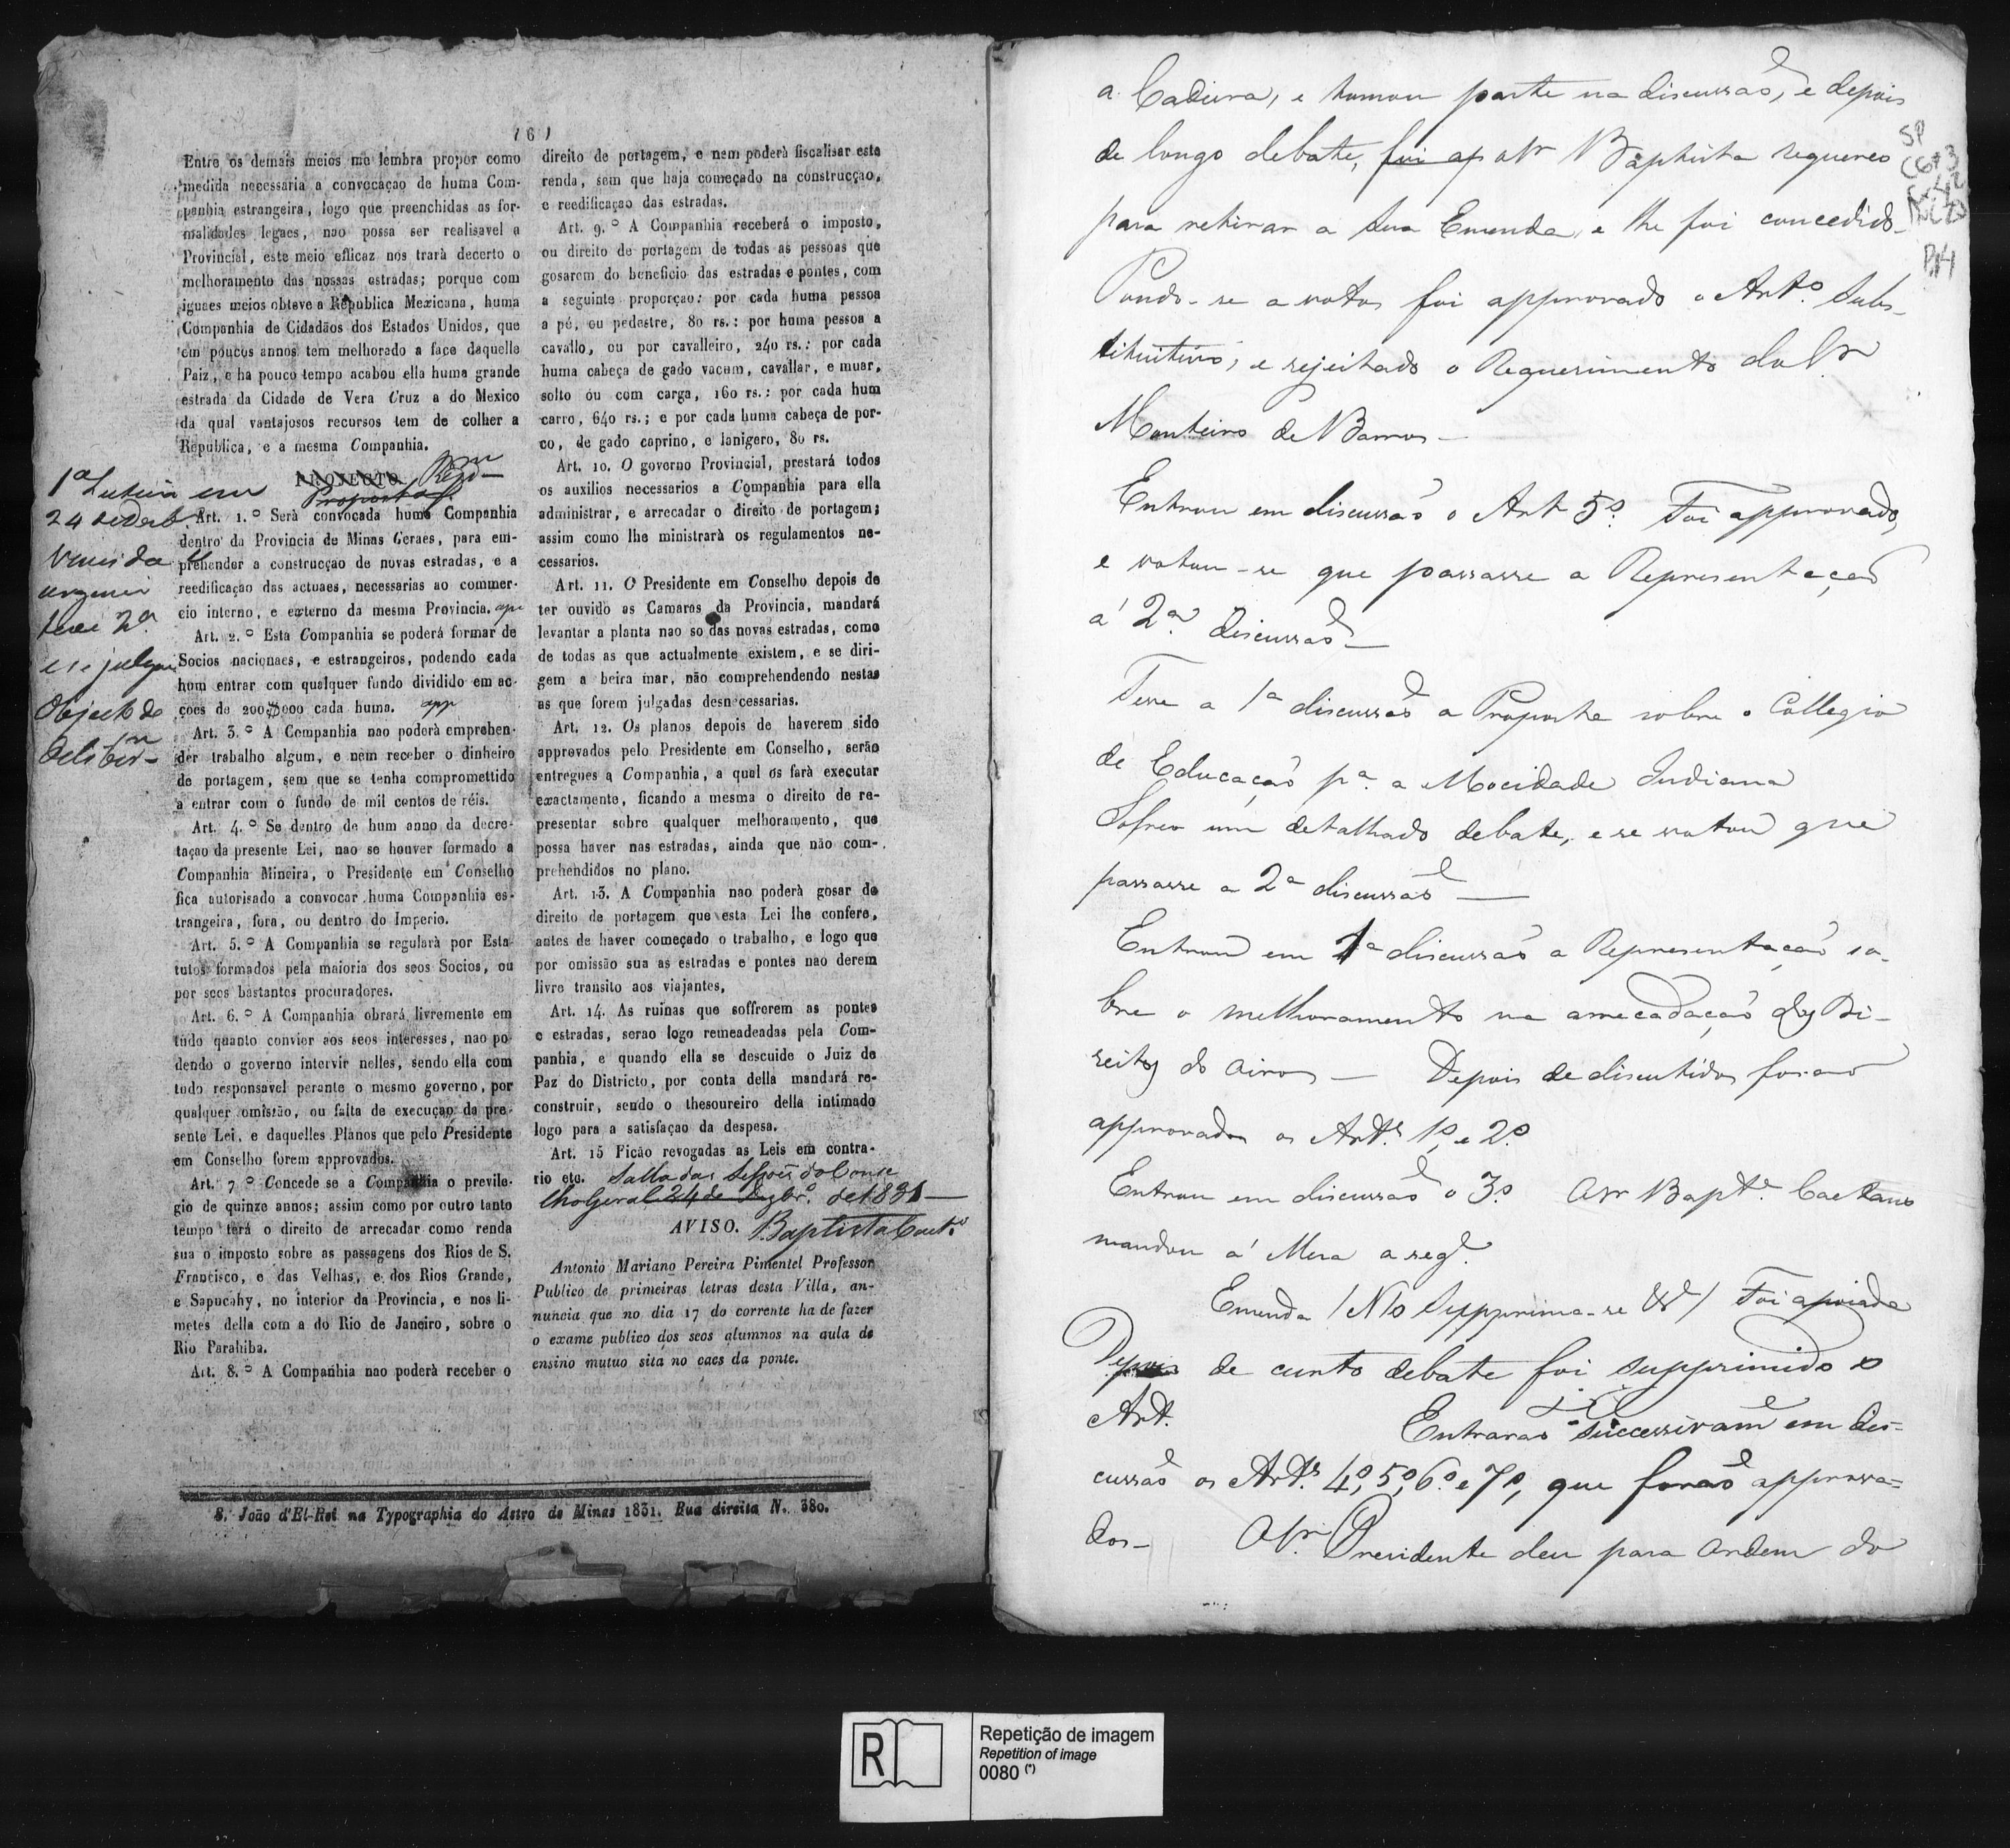 ( 6 )
Entre os demais meios me lembra propor como
medida necessaria a convocaçao de huma Com-
panhia estrangeira, logo que preenchidas as for-
malidades legaes, nao possa ser realisavel a
Provincial, este meio efficaz nos trarà decerto o
melhoramento das nossas estradas; porque com
iguaes meios obteve a Republica Mexicana, huma
Companhia de Cidadãos dos Estados Unidos, que
em poucos annos tem melhorado a face daquelle
Paiz, e ha pouco tempo acabou ella huma grande
estrada da Cidade de Vera Cruz a do Mexico
da qual vantajosos recursos tem de colher a
Republica, e a mesma Companhia.
PROJECTO.
Proposta
Art. 1.º Serà convocada huma Companhia
dentro da Provincia de Minas Geraes, para em-
prehender a construcçao de novas estradas, e a
reedificaçao das actuaes, necessarias ao commer-
cio interno, e externo da mesma Provincia.
Art. 2.º Esta Companhia se poderá formar de
Socios nacionaes, e estrangeiros, podendo cada
hum entrar com qualquer fundo dividido em ac-
çoes de 200$000 cada huma. app
Art. 3.º A Companhia nao poderà emprehen-
der trabalho algum, e nem receber o dinheiro
de portagem, sem que se tenha compromettido
a entrar com o fundo de mil contos de réis.
Art. 4.º Se dentro de hum anno da decre-
taçao da presente Lei, nao se houver formado a
Companhia Mineira, o Presidente em Conselho
fica autorisado a convocar huma Companhia es-
trangeira, fora, ou dentro do Imperio.
Art. 5.º A Companhia se regularà por Esta-
tutos formados pela maioria dos seos Socios, ou
por seos bastantes procuradores.
Art. 6.º A Companhia obrará livremente em
tudo quanto convier aos seos interesses, nao po
dendo o governo intervir nelles, sendo ella com
tudo responsavel perante o mesmo governo, por
qualquer omissão, ou falta de execuçao da pre-
sente Lei, e daquelles Planos que pelo Presidente
em Conselho forem approvados.
Art. 7º Concede se a Companhia o previle-
gio de quinze annos; assim como por outro tanto
tempo terá o direito de arrecadar como renda
sua o imposto sobre as passagens dos Rios de S.
Francisco, e das Velhas, e dos Rios Grande,
e Sapucahy, no interior da Provincia, e nos li-
metes della com a do Rio de Janeiro, sobre o
Rio Parahiba.
Art. 8.º A Companhia nao poderà receber o
1ª Leitura em
24 de Dezb.
vencida
urgencia
teve 2ª
e se julgou
objecto de
Deliber
direito de portagem, e nem poderà fiscalisar esta
renda, sem que haja começado na construcçao,
e reedificaçao das estradas.
Art. 9.º A Companhia receberá o imposto,
ou direito de portagem de todas as pessoas que
gosarem do beneficio das estradas e pontes, com
a seguinte proporçao: por cada huma pessoa
a pé, ou pedestre, 80 rs.: por huma pessoa a
cavallo, ou por cavalleiro, 240 rs.: por cada
huma cabeça de gado vacum, cavallar, e muar,
solto ou com carga, 160 rs.: por cada hum
carro, 640 rs.; e por cada huma cabeça de por-
co, de gado caprino, e lanigero, 80 rs.
Art. 10. O governo Provincial, prestará todos
os auxilios necessarios a Companhia para ella
administrar, e arrecadar o direito de portagem;
assim como lhe ministrarà os regulamentos ne-
cessarios.
Art. 11. O Presidente em Conselho depois de
ter ouvido as Camaras da Provincia, mandará
levantar a planta nao so das novas estradas, como
de todas as que actualmente existem, e se diri-
gem a beira mar, não comprehendendo nestas
as que forem julgadas desnecessarias.
Art. 12. Os planos depois de haverem sido
approvados pelo Presidente em Conselho, serão
entregues a Companhia, a qual os farà executar
exactamente, ficando a mesma o direito de re-
presentar sobre qualquer melhoramento, que
possa haver nas estradas, ainda que não com-
prehendidos no plano.
Art. 13. A Companhia nao poderà gosar do
direito de portagem que esta Lei lhe confere,
antes de haver começado o trabalho, e logo que
por omissão sua as estradas e pontes nao derem
livre transito aos viajantes,
Art. 14. As ruinas que soffrerem as pontes
e estradas, serao logo remeadeadas pela Com-
panhia, e quando ella se descuide o Juiz de
Paz do Districto, por conta della mandará re-
construir, sendo o thesoureiro della intimado
logo para a satisfaçao da despesa.
Art. 15 Ficão revogadas as Leis em contra-
rio etc. Salla das Sessoẽs do Conse
lho Geral 24 de Dezbrº de 1831
AVISO. Baptista Caetº
Antonio Mariano Pereira Pimentel Professor
Publico de primeiras letras desta Villa, an-
nuncia que no dia 17 do corrente ha de fazer
o exame publico dos seos alumnos na aula de
ensino mutuo sita no caes da ponte.
S. João d'El-Rei na Typographia do Astro de Minas 1831. Rua direita N. 380.
a Cadeira, e tomou parte na discussaõ, e depois
de longo debate, foi ap o Sr Baptista requereo
para retirar a sua Emenda, e lhe foi concedido
Pondo-se a votos foi approvado o Artº Subs-
titutivo, e rejeitado o Requerimento do Sr
Monteiro de Barros
Entrou em discussaõ o Art 5º Foi approvado,
e votou-se que passasse a Representaçaõ
á 2ª discussaõ
Teve a 1ª discussaõ a Proposta sobre o Collegio
de Educaçaõ pª a Mocidade Indiana
Sofreo um detalhado debate, e se votou que
passasse a 2ª discussaõ
Entrou em 1ª discussaõ a Representaçaõ so-
bre o melhoramento na arrecadaçaõ dos Di-
reitos do Oiro — Depois de discutidos foraõ
approvados os Artˢ 1º, e 2º
Entrou em discussaõ o 3º O Sr Baptª Caetano
mandou á Mesa a segᵉ
Emenda / Nº Suppprima-se &ª/ Foi apoiada
Depois de curto debate foi supprimido o
Art. Entraraõ successivamᵉ em dis-
cussaõ os Artˢ 4º, 5º, 6º e 7º, que foraõ approva-
dos— O Sr. Presidente deu para ordem do
SP
P14
R
Repetição de imagem
Repetition of image
0080 (*)